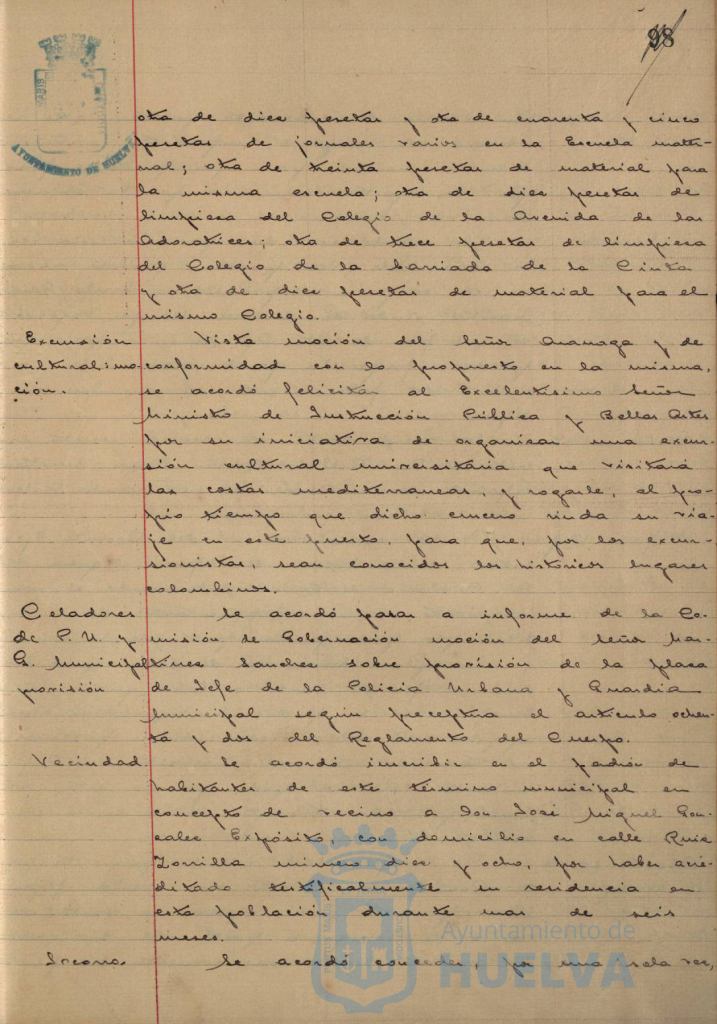 98
AYUNTAMIENTO DE HUELVA
otra de diez pesetas y otra de cuarenta y cinco
pesetas de jornales varios en la Escuela mater-
nal; otra de treinta pesetas de material para
la misma escuela; otra de diez pesetas de
limpieza del Colegio de la Avenida de las
Adoratrices; otra de trece pesetas de limpieza
del Colegio de la barriada de la Cinta
y otra de diez pesetas de material para el
mismo Colegio.
Excursión
cultural: mo-
ción.
Vista moción del Señor y de
conformidad con lo propuesto en la misma,
se acordó felicitar al Excelentísimo Señor
Ministro de Instrucción Pública y Bellas Artes
por su iniciativa de organizar una excur-
sión cultural universitaria que visitará
las costas mediterraneas, y rogarle, al pro-
pio tiempo que dicho crucero rinda su via-
je en este puerto, para que, por los excur-
sionistas, sean conocidos los históricos lugares
colombinos.
Celadores
de P. U. y
G. Municipal
provisión
Se acordó pasar a informe de la Co-
misión de Gobernación moción del Señor Mar-
tínez Sanchez sobre provisión de la plaza
de Jefe de la Policia Urbana y Guardia
Municipal según preceptúa el artículo ochen-
ta y dos del Reglamento del Cuerpo.
Vecindad.
Se acordó inscribir en el padrón de
habitantes de este término municipal en
concepto de vecino a Don José Miguel Gon-
zalez Expósito, con domicilio en calle Ruiz
Zorrilla número diez y ocho, por haber acre-
ditado testificalmente su residencia en
esta población durante mas de seis
meses.
Socorro.
Se acordó conceder, por una sola vez,
Ayuntamiento de
HUELVA